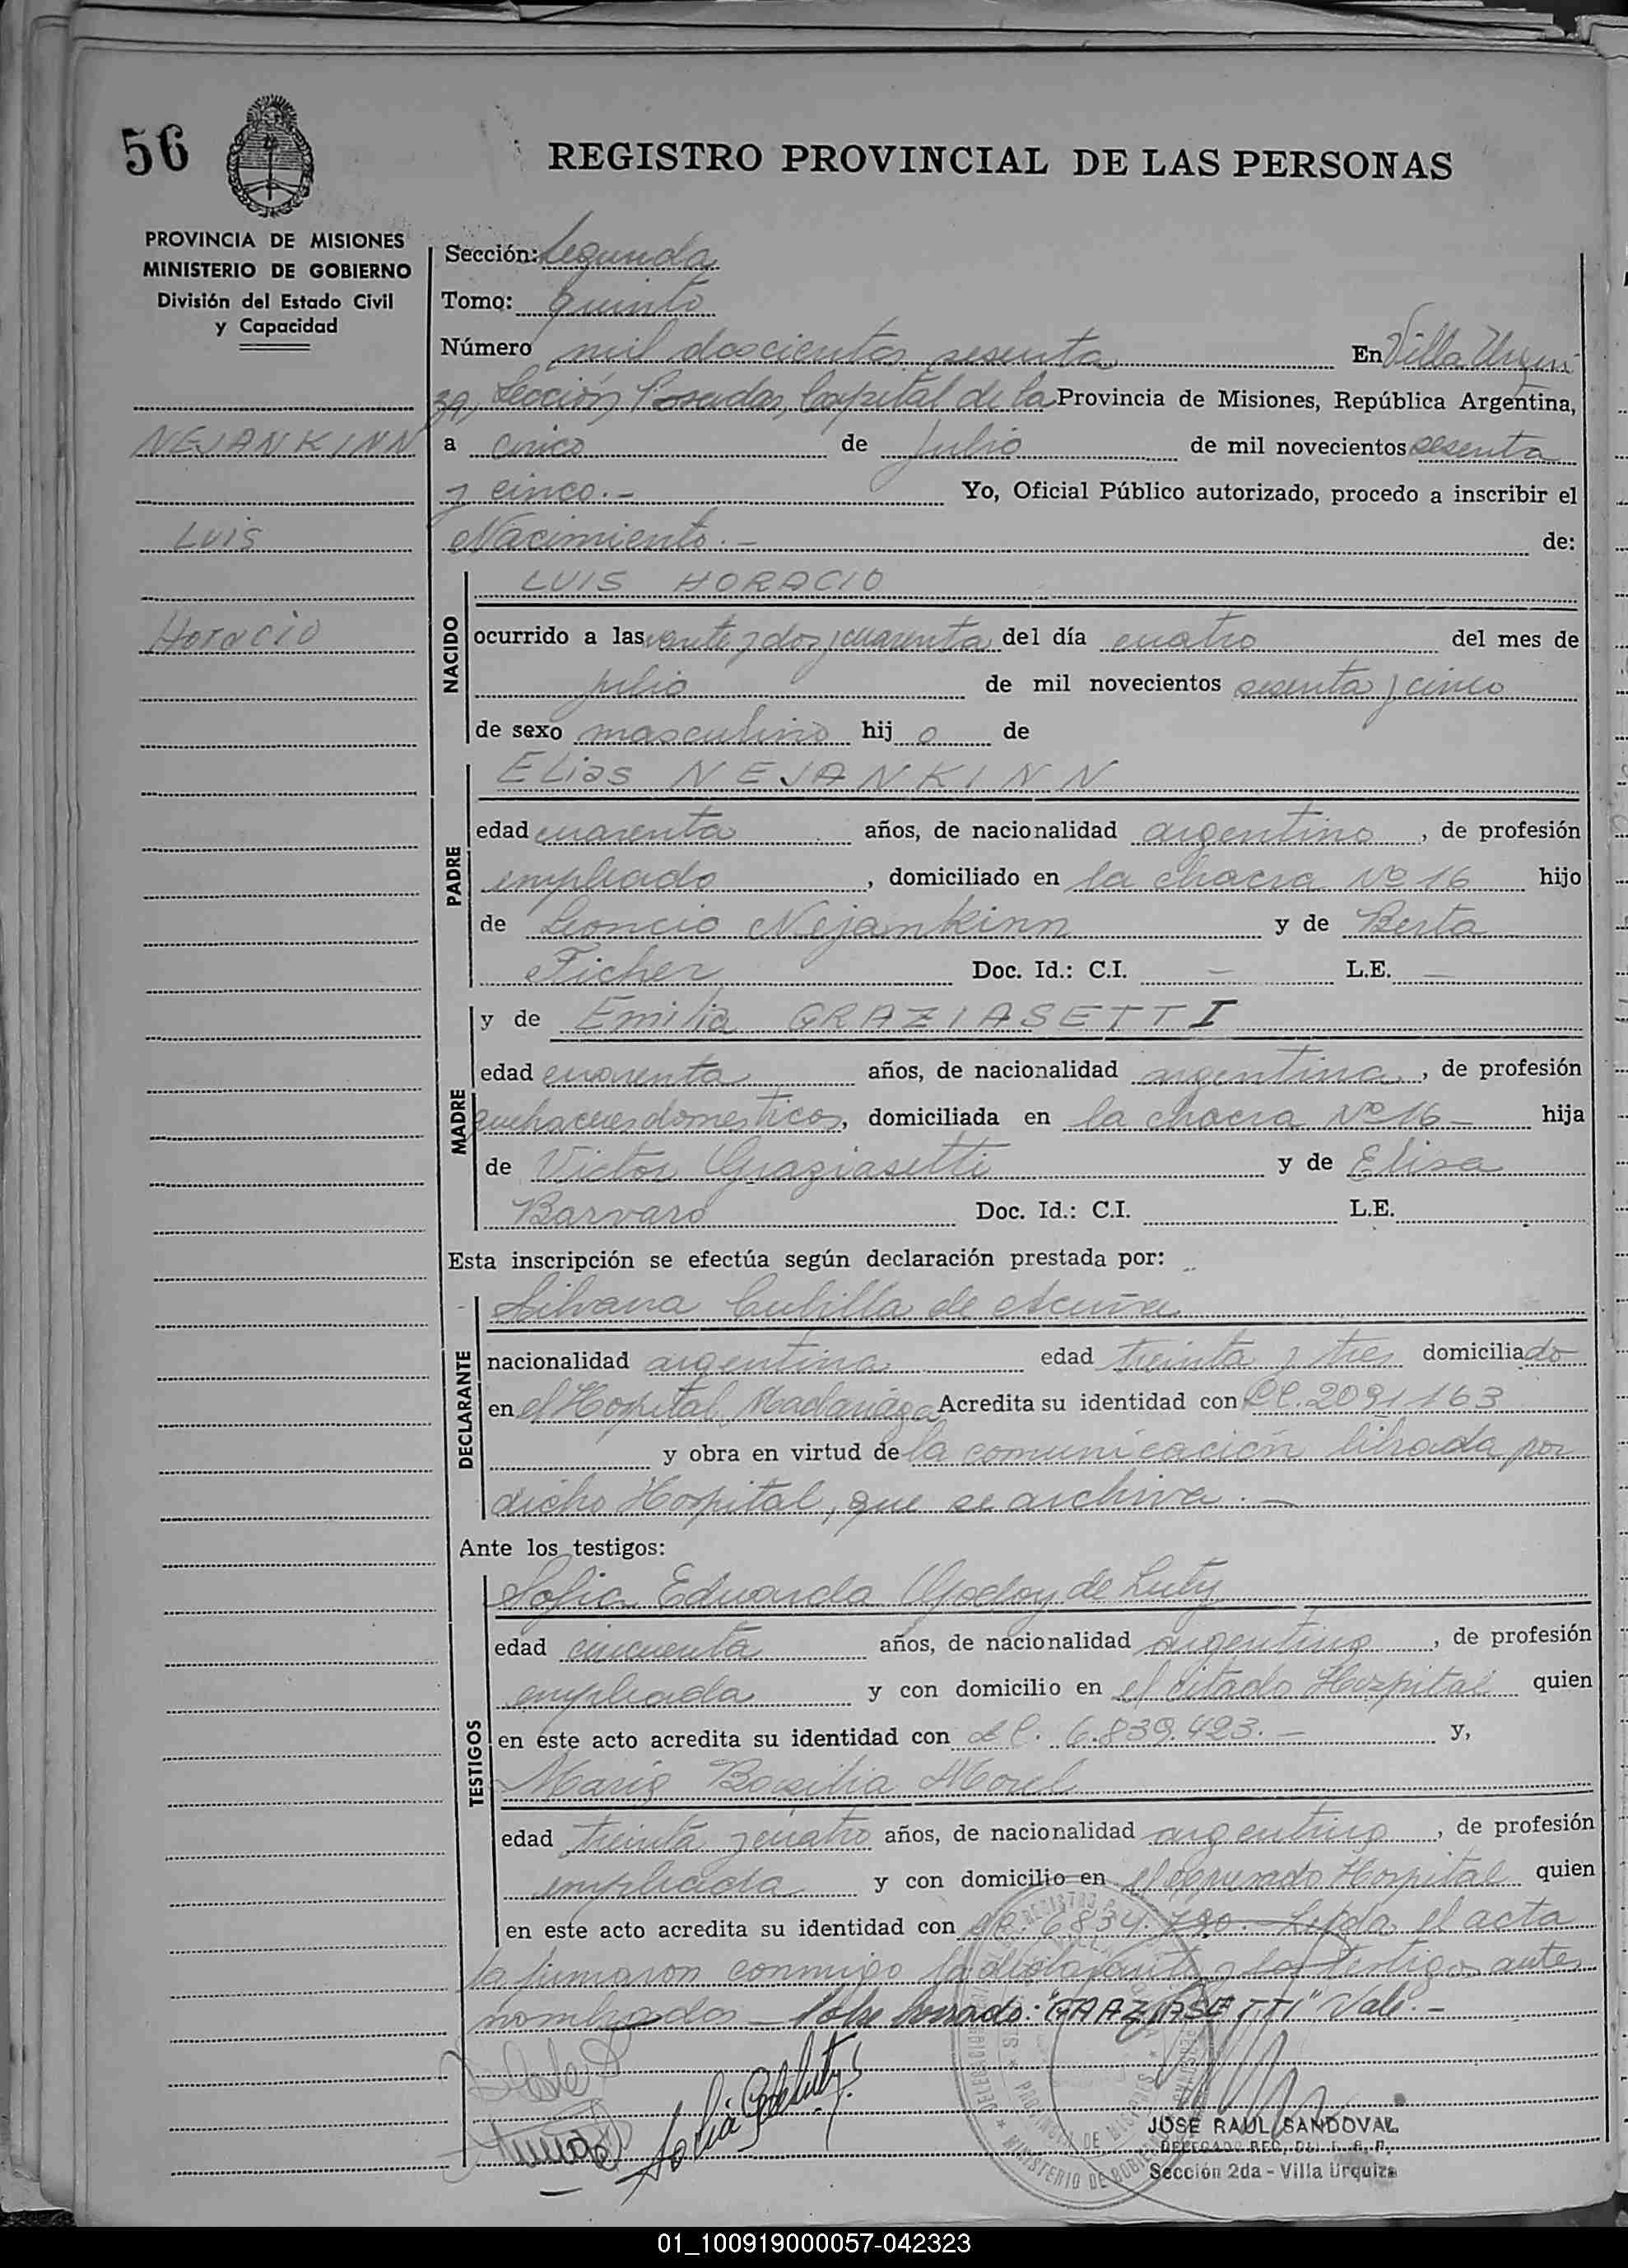 56
REGISTRO PROVINCIAL DE LAS PERSONAS
PROVINCIA DE MISIONES
MINISTERIO DE GOBIERNO
División del Estado Civil
y Capacidad
NEJANKINN
Luis
Horacio
Sección: Segunda
Tomo: quinto
Número mil doscientos sesenta En Villa
Sección Posadas, Capital de la Provincia de Misiones, República Argentina,
a cinco de Julio de mil novecientos sesenta
y cinco.- Yo, Oficial Público autorizado, procedo a inscribir el
Nacimiento.- de:
NACIDO
LUIS HORACIO
ocurrido a las veinte y dos y cuarenta del día cuatro del mes de
julio de mil novecientos sesenta y cinco
de sexo masculino hij o de
PADRE
Elias NEJANKINN
edad cuarenta años, de nacionalidad argentino, de profesión
empleado, domiciliado en la chacra Nº 16 hijo
de Leoncio Nejamkinn y de Berta
Ficher Doc. Id.: C.I. - L.E. -
MADRE
y de Emilia GRAZIASETTI
edad cuarenta años, de nacionalidad argentina, de profesión
quehaceres domesticos, domiciliada en la chacra Nº 16 - hija
de Victor Graziasetti y de Elisa
Barvaro Doc. Id.: C.I. L.E.
Esta inscripción se efectúa según declaración prestada por:
DECLARANTE
Silvana Cubilla de Acuña
nacionalidad argentina edad treinta y tres domiciliado
en el Hospital Madariaga Acredita su identidad con 2091163
y obra en virtud de la comunicación librada por
dicho Hospital, que se archiva.-
Ante los testigos:
TESTIGOS
Sofia Eduarda Godoy de Luty
edad cincuenta años, de nacionalidad argentina, de profesión
empleada y con domicilio en el citado Hospital quien
en este acto acredita su identidad con 6.839.423.- y,
Maria Basilia Morel
edad treinta y cuatro años, de nacionalidad argentina, de profesión
empleada y con domicilio en el Hospital quien
en este acto acredita su identidad con 6834.790. - Leida el acta
la firmaron conmigo la declarante y los testigos antes
nombrados - Sobre borrado: "GRAZIASETTI" Vale.-
JOSE RAUL SANDOVAL
Sección 2da - Villa Urquiza
01_100919000057-042323